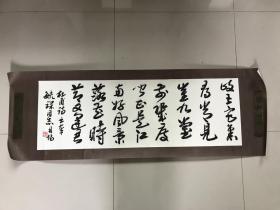 岐王宅里
尋常見
崔九堂
前幾度
聞正是江
南好風景
落花時
節又逢君
杜甫詩一首
同志